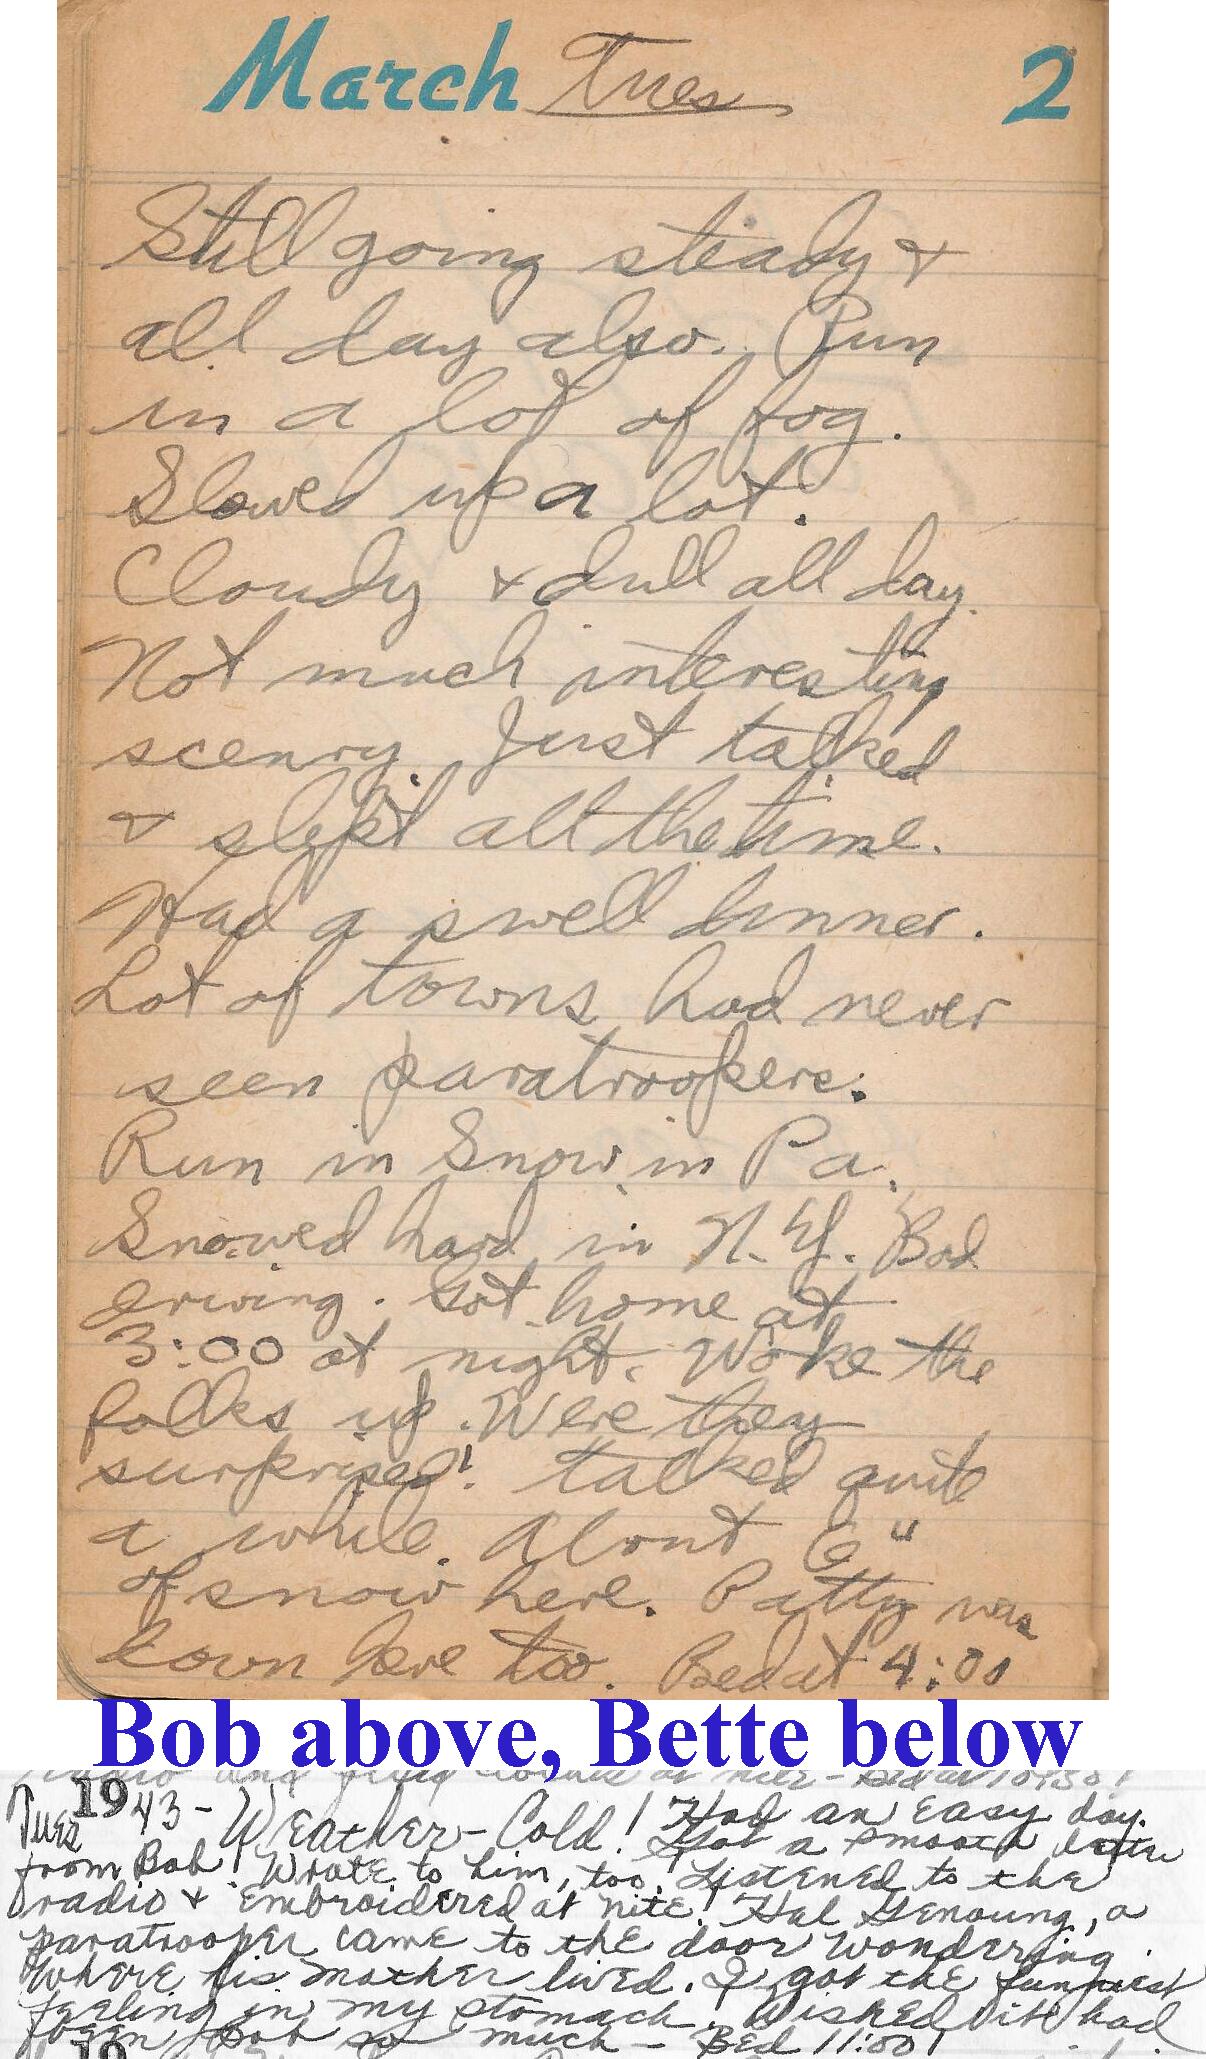 March Tues 2
Still going steady &
all day also. Run
in a lot of fog.
Slowed up a lot.
Cloudy & dull all day.
Not much interesting
scenry. Just talked
& slept all the time.
Had a swell dinner.
Lot of towns had never
seen paratroopers.
Run in Snow in Pa.
Snowed hard in N.Y. Bad
driving. Got home at
3:00 at night. Woke the
folks up. Were they
surprised! Talked quite
a while. About 6"
of snow here. Patty was
down here too. Bed at 4:00
Bob above, Bette below
radio and at nite - Bed at 10:30!
Tues 1943 - Weather - Cold! Had an easy day.
Got a smooth letter
from Bob! Wrote to him, too. Listened to the
radio & embroidered at nite! Hal Genoung, a
paratrooper came to the door wondering
where his mother lived. I got the funniest
feeling in my stomach. Wished it had
been Bob so much - Bed 11:00!
19